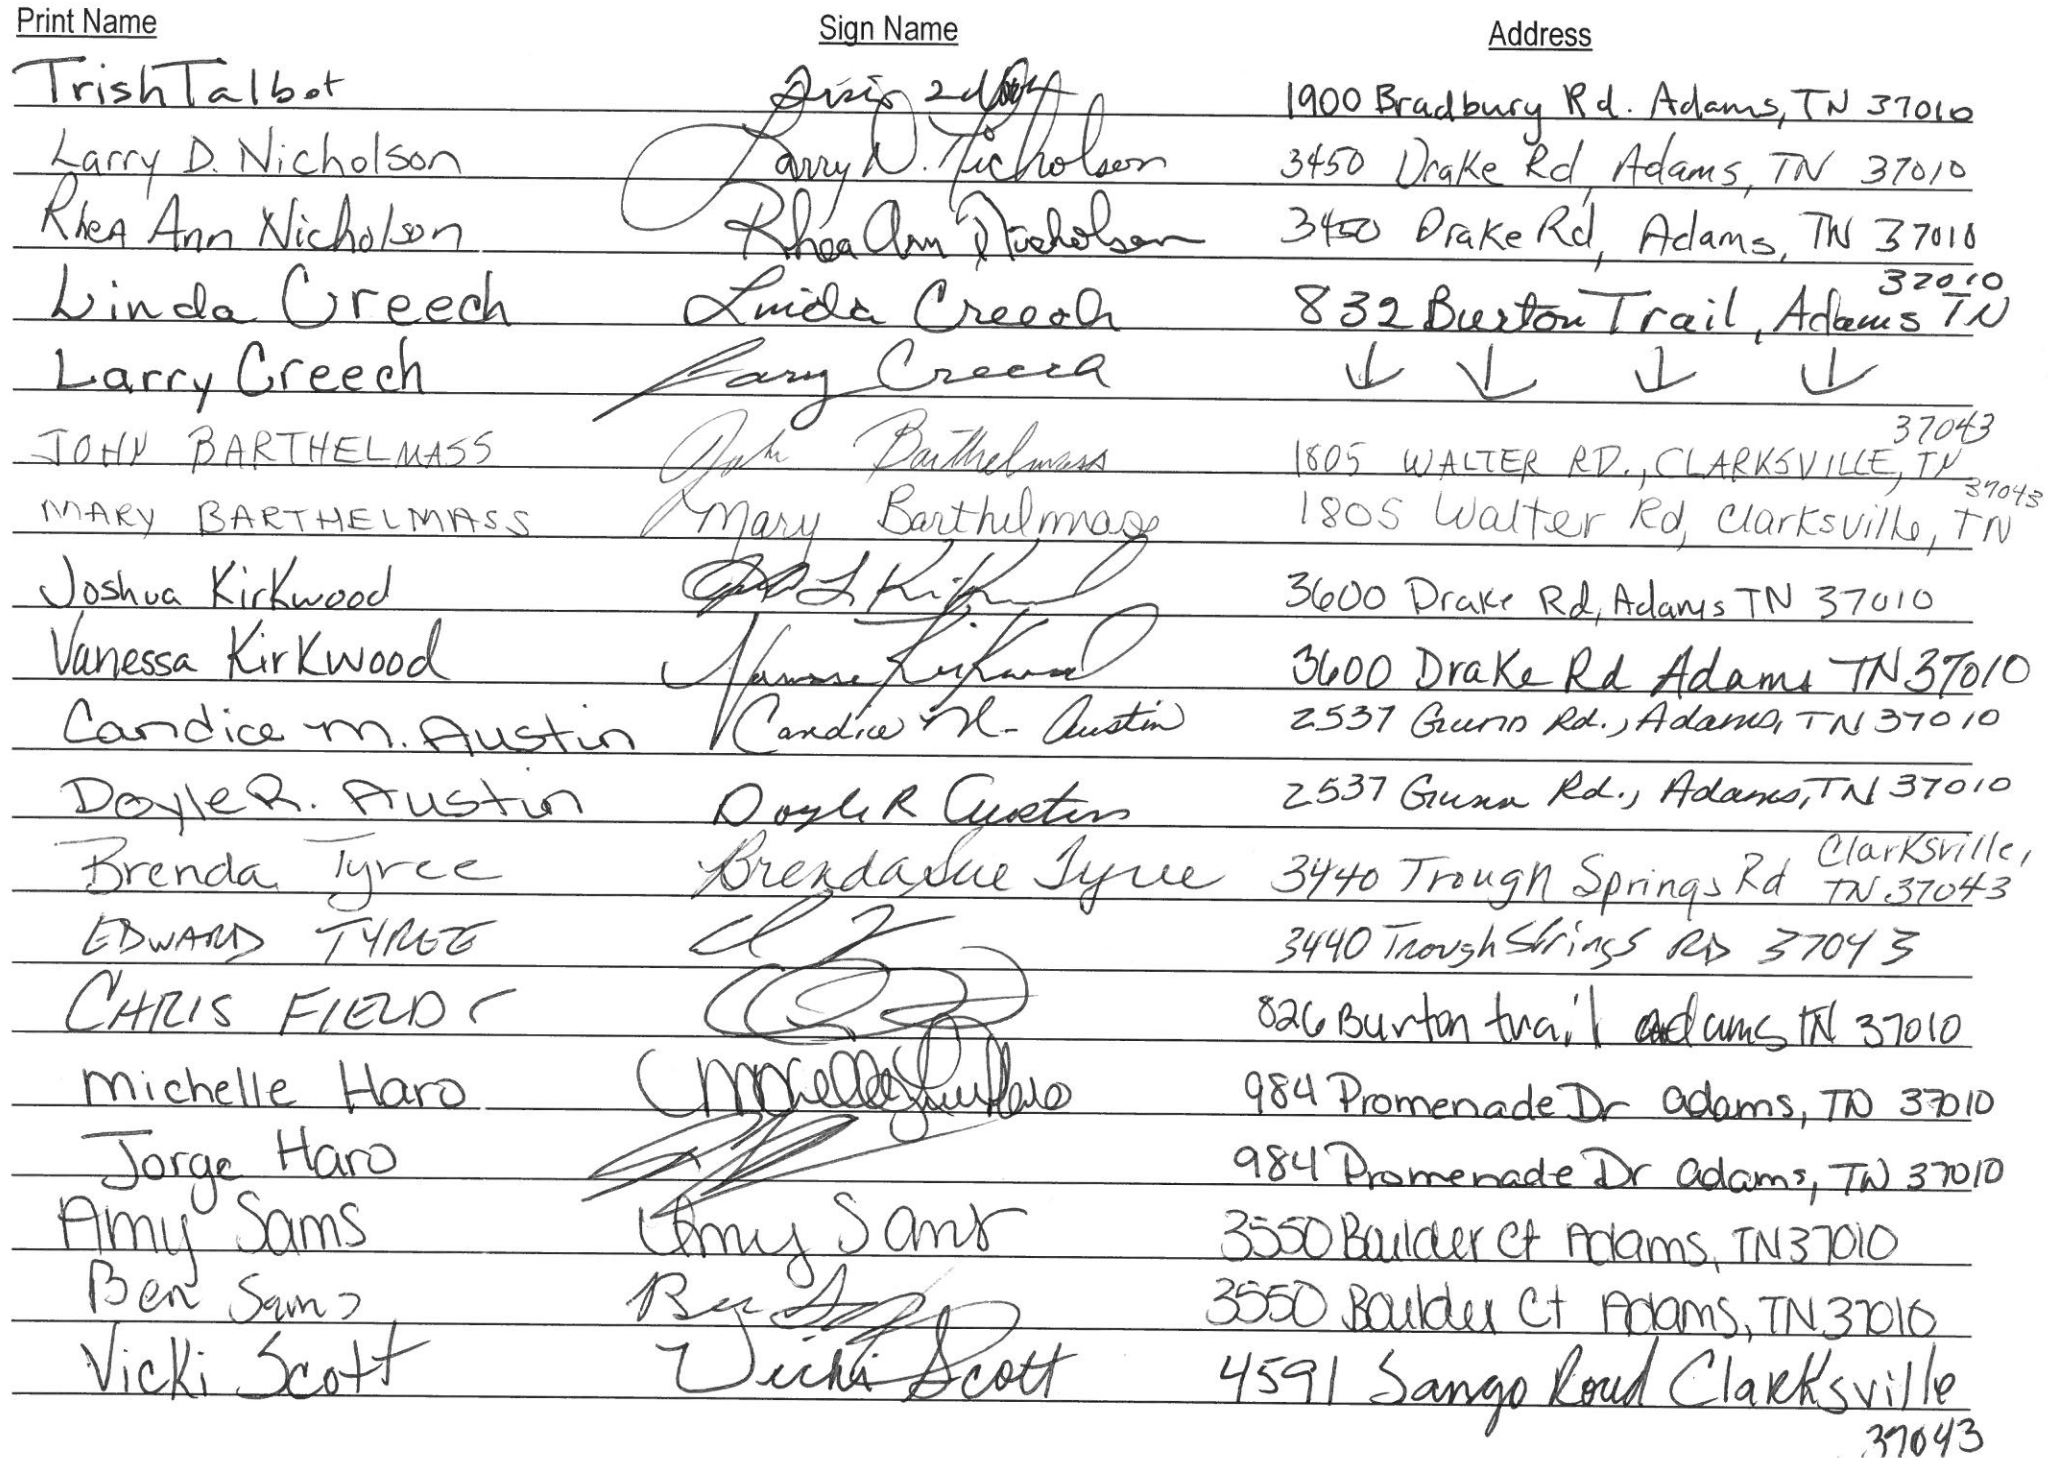 Print Name Sign Name Address
Trish Talbot 1900 Bradbury Rd. Adams, TN 37010
Larry D. Nicholson Larry D. Nicholson 3450 Drake Rd, Adams, TN 37010
Rhea Ann Nicholson Rhea Ann Nicholson 3450 Drake Rd, Adams, TN 37010
37010
Linda Creech Linda Creech 832 Burton Trail, Adams TN
Larry Creech Larry Creech ↓ ↓ ↓ ↓
37043
JOHN BARTHELMASS John Barthelmass 1805 WALTER RD., CLARKSVILLE, TN
37043
MARY BARTHELMASS Mary Barthelmass 1805 Walter Rd, Clarksville, TN
Joshua Kirkwood 3600 Drake Rd, Adams TN 37010
Vanessa Kirkwood Vanessa Kirkwood 3600 Drake Rd Adams TN 37010
Candice M. Austin Candice M. Austin 2537 Gunn Rd., Adams, TN 37010
Doyle R. Austin Doyle R Austin 2537 Gunn Rd., Adams, TN 37010
Brenda Tyree Brenda Sue Tyree 3440 Trough Springs Rd Clarksville,
TN 37043
EDWARD TYREE 3440 Trough Springs RD 37043
CHRIS FIELDS 826 Burton trail adams TN 37010
Michelle Haro 984 Promenade Dr adams, TN 37010
Jorge Haro 984 Promenade Dr adams, TN 37010
Amy Sams Amy Sams 3550 Boulder Ct Adams, TN 37010
Ben Sams Ben 3550 Boulder Ct Adams, TN 37010
Vicki Scott Vicki Scott 4591 Sango Road Clarksville
37043